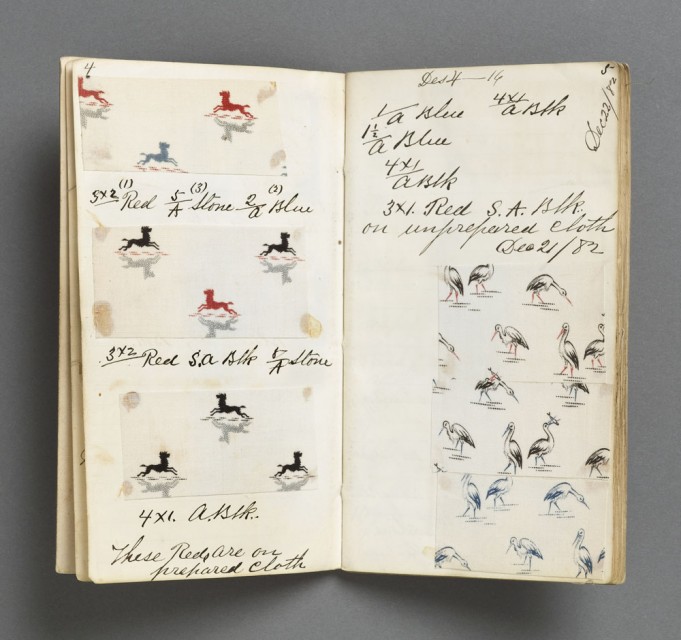 4
3x2 (1) Red 5/A (3) Stone 2/a (3) Blue
3x2 Red S.a Blk 5/A Stone
4x1. A.Blk.
These Reds are on
prepared cloth
5
Des 4 — 14
Dec 22/82
1/a Blue 4x1/a Blk
1 1/2/a Blue
4x1/a Blk
3x1. Red S.A. Blk.
on unprepared cloth
Dec 21/82